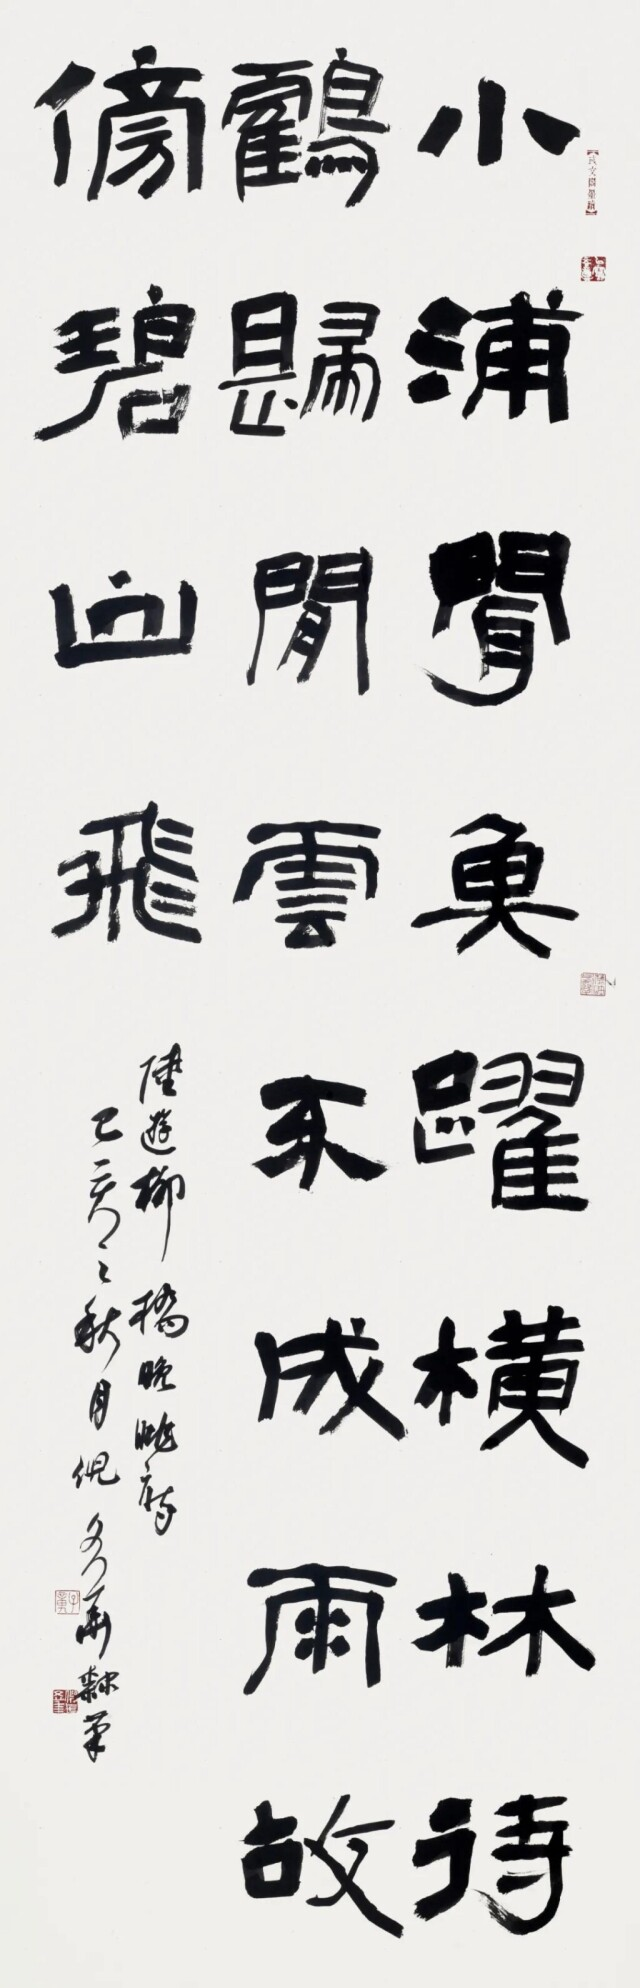 小浦聞魚躍橫林待
鶴歸閒雲不成雨故
傍碧山飛
陸遊柳橋晚眺詩
己亥之秋月倪